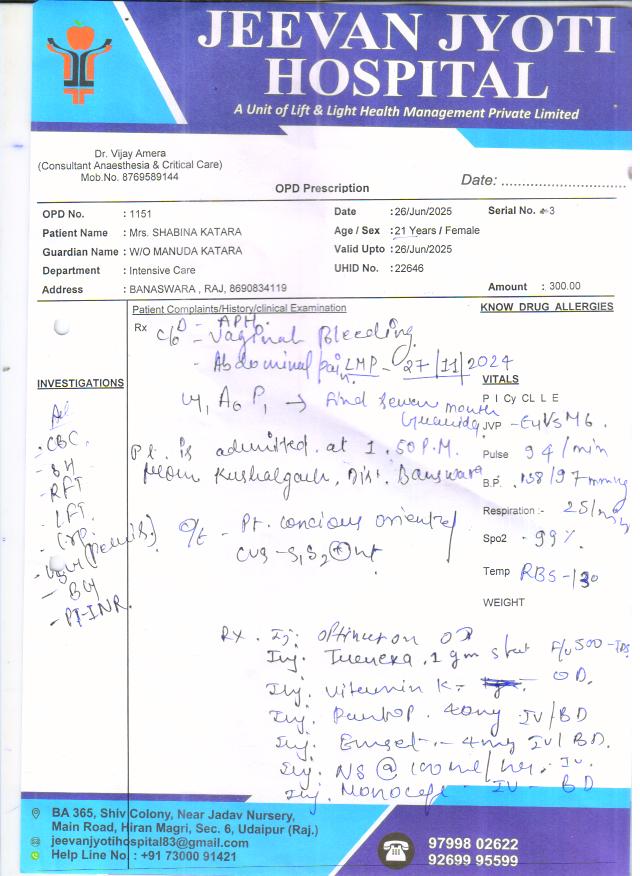 JEEVAN JYOTI
HOSPITAL
A Unit of Lift & Light Health Management Private Limited
Dr. Vijay Amera
(Consultant Anaesthesia & Critical Care)
Mob.No. 8769589144
OPD Prescription
Date: ........................
OPD No. : 1151
Date : 26/Jun/2025
Serial No. 3
Patient Name : Mrs. SHABINA KATARA
Age / Sex : 21 Years / Female
Guardian Name : W/O MANUDA KATARA
Valid Upto : 26/Jun/2025
Department : Intensive Care
UHID No. : 22646
Address : BANASWARA , RAJ, 8690834119
Amount : 300.00
Patient Complaints/History/clinical Examination
KNOW DRUG ALLERGIES
Rx
D - APH.
c/o - Vaginal Bleeding.
- Abdominal pain. LMP - 27/11/2024
INVESTIGATIONS
VITALS
P I Cy CL L E
JVP - E4V5M6.
Pulse 94/min
B.P. 138/97 mmHg
Respiration :- 25/
Spo2 - 99%
Temp RBS-130
WEIGHT
- CBC.
- RFT
- LFT.
- PT-INR.
Pt. is admitted at 1.50 P.M.
from Kushalgarh, Dist. Banswara
O/E - Pt. concious oriented
CVS - S1S2 +nt
Rx. Inj. OD
Inj. 1 gm stat F/U 500 - TDS
Inj. Vitamin K - OD.
Inj. PantoP. 40mg IV/BD
Inj. Emset - 4mg IV/BD.
Inj. NS @ 100 ml/hr. IV.
Inj. Monocef - IV - BD
BA 365, Shiv Colony, Near Jadav Nursery,
Main Road, Hiran Magri, Sec. 6, Udaipur (Raj.)
jeevanjyotihospital83@gmail.com
Help Line No. : +91 73000 91421
97998 02622
92699 95599